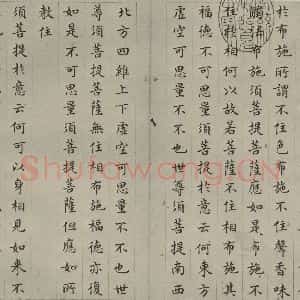 於布施所謂不住色布施不住聲香味
觸法布施須菩提菩薩應如是布施不
住於相何以故若菩薩不住相布施其
福德不可思量須菩提於意云何東方
虛空可思量不不也世尊須菩提南西
北方四維上下虛空可思量不不也世
尊須菩提菩薩無住相布施福德亦復
如是不可思量須菩提菩薩但應如所
教住
須菩提於意云何可以身相見如來不
Shufawang.CN